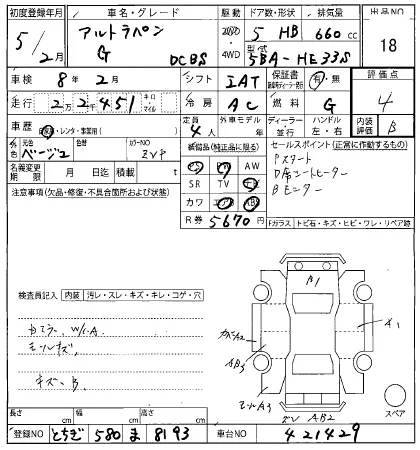 初度登録年月 車名・グレード 駆動 ドア数・形状 排気量 出品NO
5/2月 アルトラパン 2WD 5 HB 660cc 18
G DCBS ・4WD 型式 5BA-HE33S
車検 8年2月 シフト IAT 保証書 有・無 評価点
走行 2万2千451 キロ・マイル 冷房 AC 燃料 G 4
車歴 自家用・レンタ・事業用( ) 定員 4人 外車モデル 年 ディーラー 並行 ハンドル 左・右 内装評価 B
外色 元色 ベージュ 色替 カラーNO ZVP
装備品(純正品に限る) セールスポイント(正常に作動するもの)
名義変更期限 月 日 積載 t
PS PW AW Pスタート
SR TV ナビ D席シートヒーター
カワ エアB ABS Bモニター
注意事項(欠品・修復・不具合箇所および状態)
R券 5670円 Fガラス トビ石・キズ・ヒビ・ワレ・リペア跡
検査員記入 内装 汚レ・スレ・キズ・キレ・コゲ・穴
B1
A1
AB3
キズ、B
A3
AB2
スペア
長さ cm 幅 cm 高さ cm
登録NO とちぎ 580 ま 8193 車台NO 421429